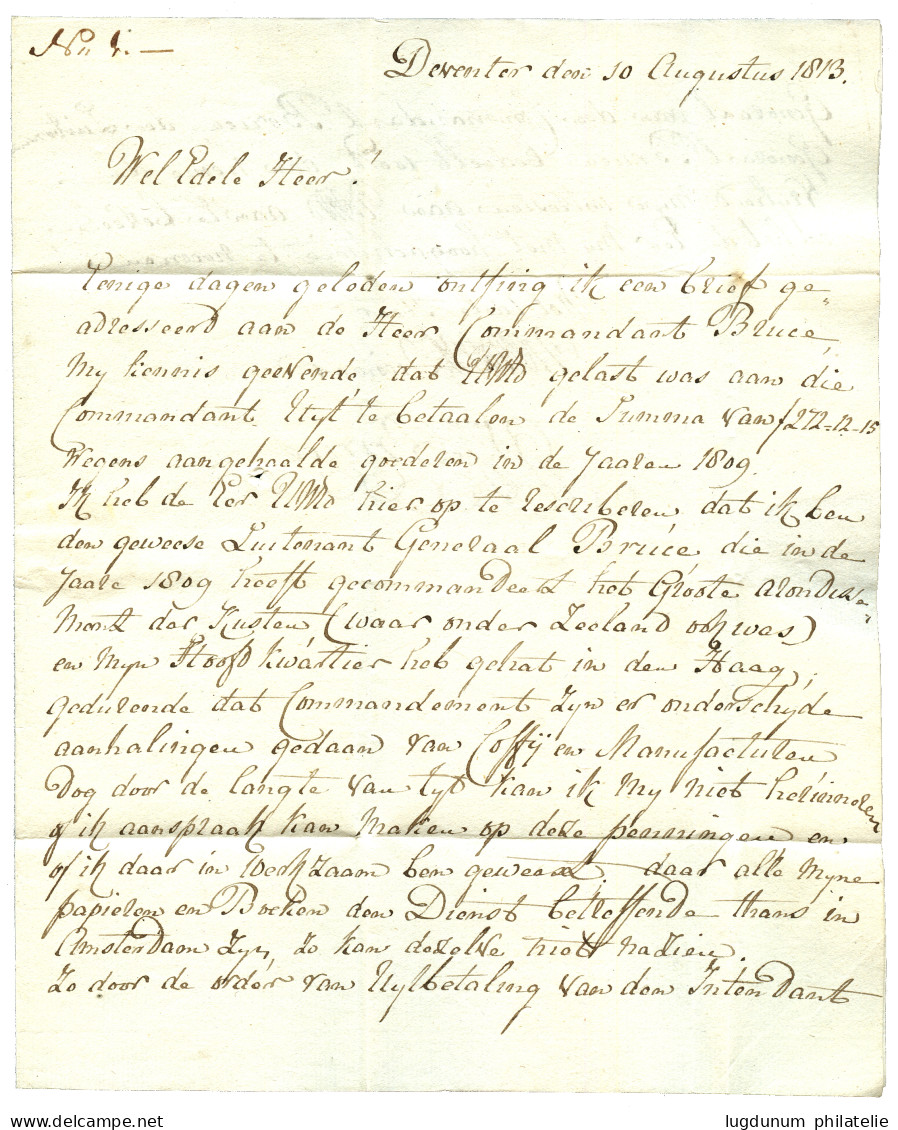 Deventer den 10 Augustus 1813.
Wel Edele Heer!
Eenige dagen geleden ontfing ik een brief ge"
adresseerd aan de Heer Commandant Bruce,
My kennis geevende, dat UWEd gelast was aan die
Commandant Uyt te betaalen de Summa van f272=12-15
Wegens aangehaalde goederen in de Jaaren 1809.
Ik heb de Eer UWEd hier op te rescriberen dat ik ben
den geweese Luitenant Generaal Bruce die in de
Jaare 1809 heeft gecommandeert het Groote Arondisse"
Ment der Kusten (waar onder Zeeland ook was)
en Myn Hoofd kwartier heb gehat in den Haag,
gedurende dat Commandement Zyn er onderschyde
aanhalingen gedaan van Coffy en Manufacturen
Dog door de langte van tyt kan ik My niet herinneren
of ik aanspraak kan Maken op deze penningen en
of ik daar in Werkzaam ben geweest, daar alle Myne
papieren en Boeken den Dienst betreffende thans in
Amsterdam Zyn, Zo kan dezelve niet nazien.
Zo door de order van Uytbetaling van den Intendant
lugdunum philatelie